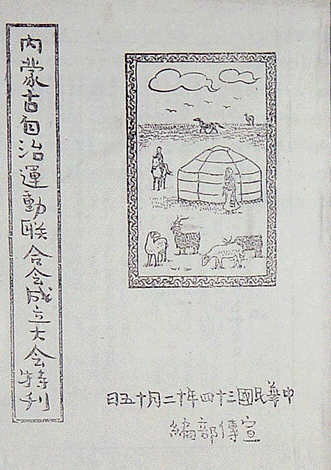 內蒙古自治運動联合会成立大会特刋
中華民國三十四年十二月十五日
宣傳部編